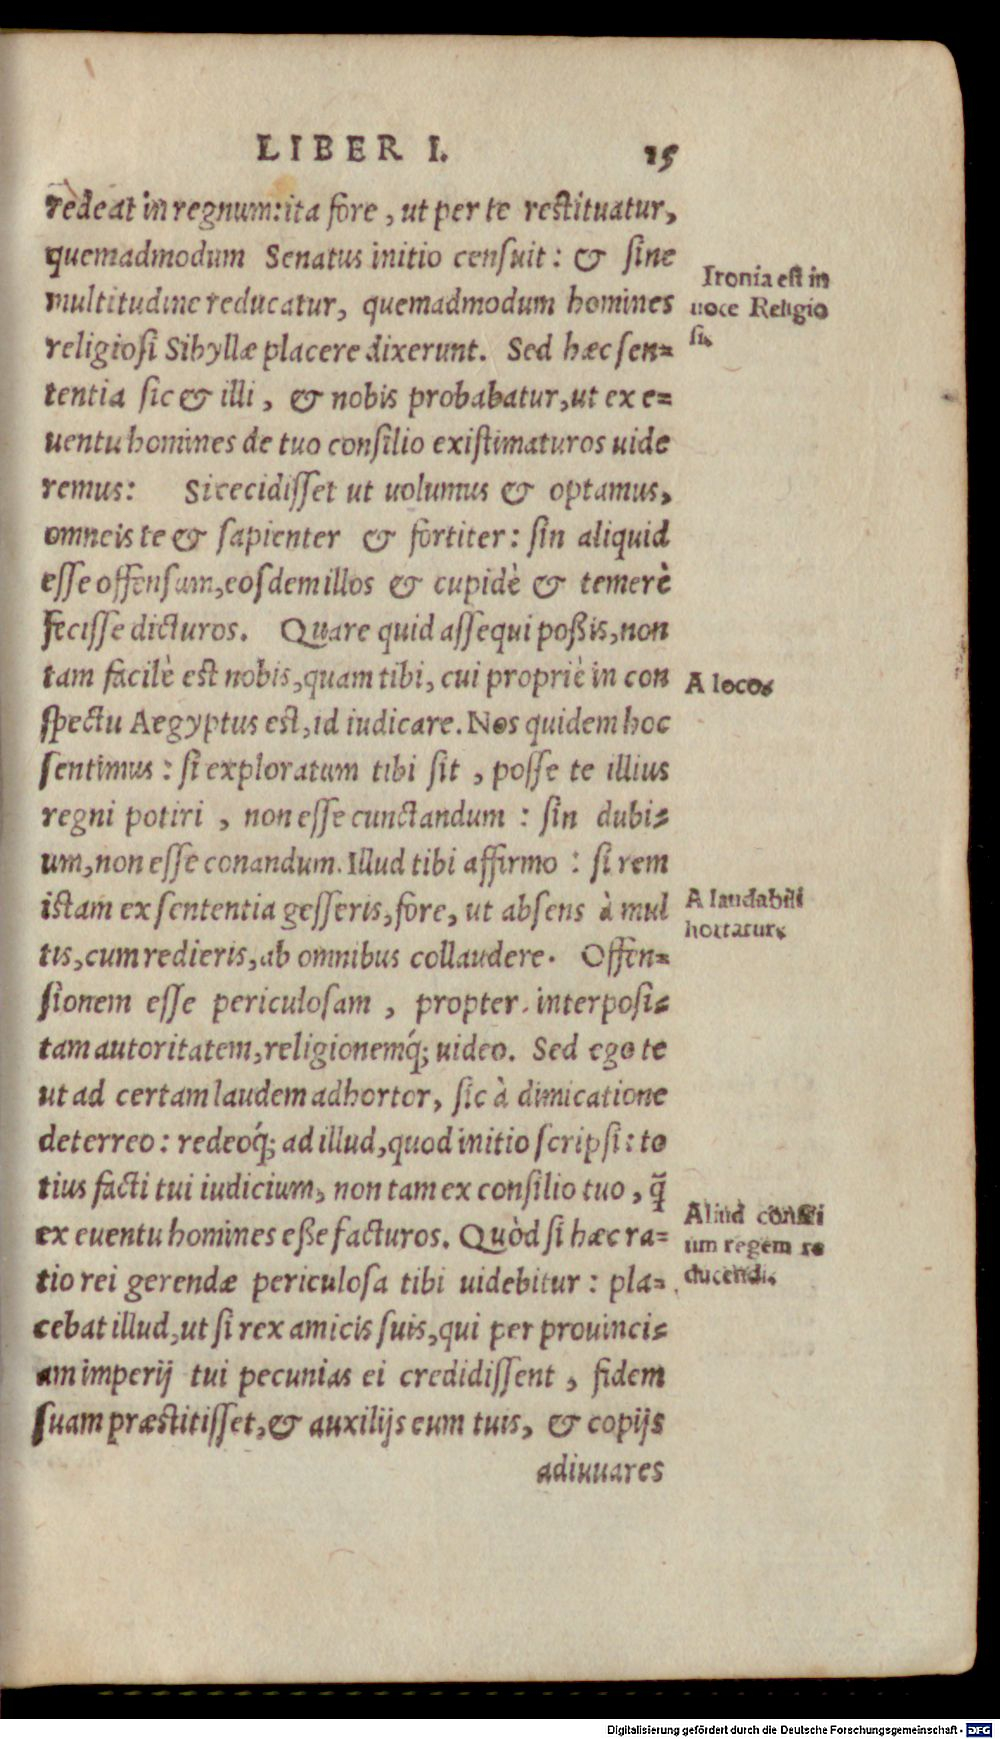 LIBER I. 15
redeat in regnum: ita fore, ut per te restituatur,
quemadmodum Senatus initio censuit: & sine
multitudine reducatur, quemadmodum homines
religiosi Sibyllæ placere dixerunt. Sed hæc sen=
tentia sic & illi, & nobis probabatur, ut ex e=
uentu homines de tuo consilio existimaturos uide
remus: Si cecidisset ut uolumus & optamus,
omneis te & sapienter & fortiter: sin aliquid
esse offensum, eosdem illos & cupidè & temerè
fecisse dicturos. Quare quid assequi poßis, non
tam facilè est nobis, quam tibi, cui propriè in con
spectu Aegyptus est, id iudicare. Nos quidem hoc
sentimus: si exploratum tibi sit, posse te illius
regni potiri, non esse cunctandum: sin dubi=
um, non esse conandum. Illud tibi affirmo: si rem
istam ex sententia gesseris, fore, ut absens à mul
tis, cum redieris, ab omnibus collaudere. Offen=
sionem esse periculosam, propter interposi=
tam autoritatem, religionemq́; uideo. Sed ego te
ut ad certam laudem adhortor, sic à dimicatione
deterreo: redeoq́; ad illud, quod initio scripsi: to
tius facti tui iudicium, non tam ex consilio tuo, q̃
ex euentu homines eße facturos. Quòd si hæc ra=
tio rei gerendæ periculosa tibi uidebitur: pla=
cebat illud, ut si rex amicis suis, qui per prouinci=
am imperij tui pecunias ei credidissent, fidem
suam præstitisset, & auxilijs eum tuis, & copijs
adiuuares
Ironia est in
uoce Religio
si.
A locos
A laudabili
hortatur.
Aliud consili
um regem re
ducendi.
Digitalisierung gefördert durch die Deutsche Forschungsgemeinschaft - DFG